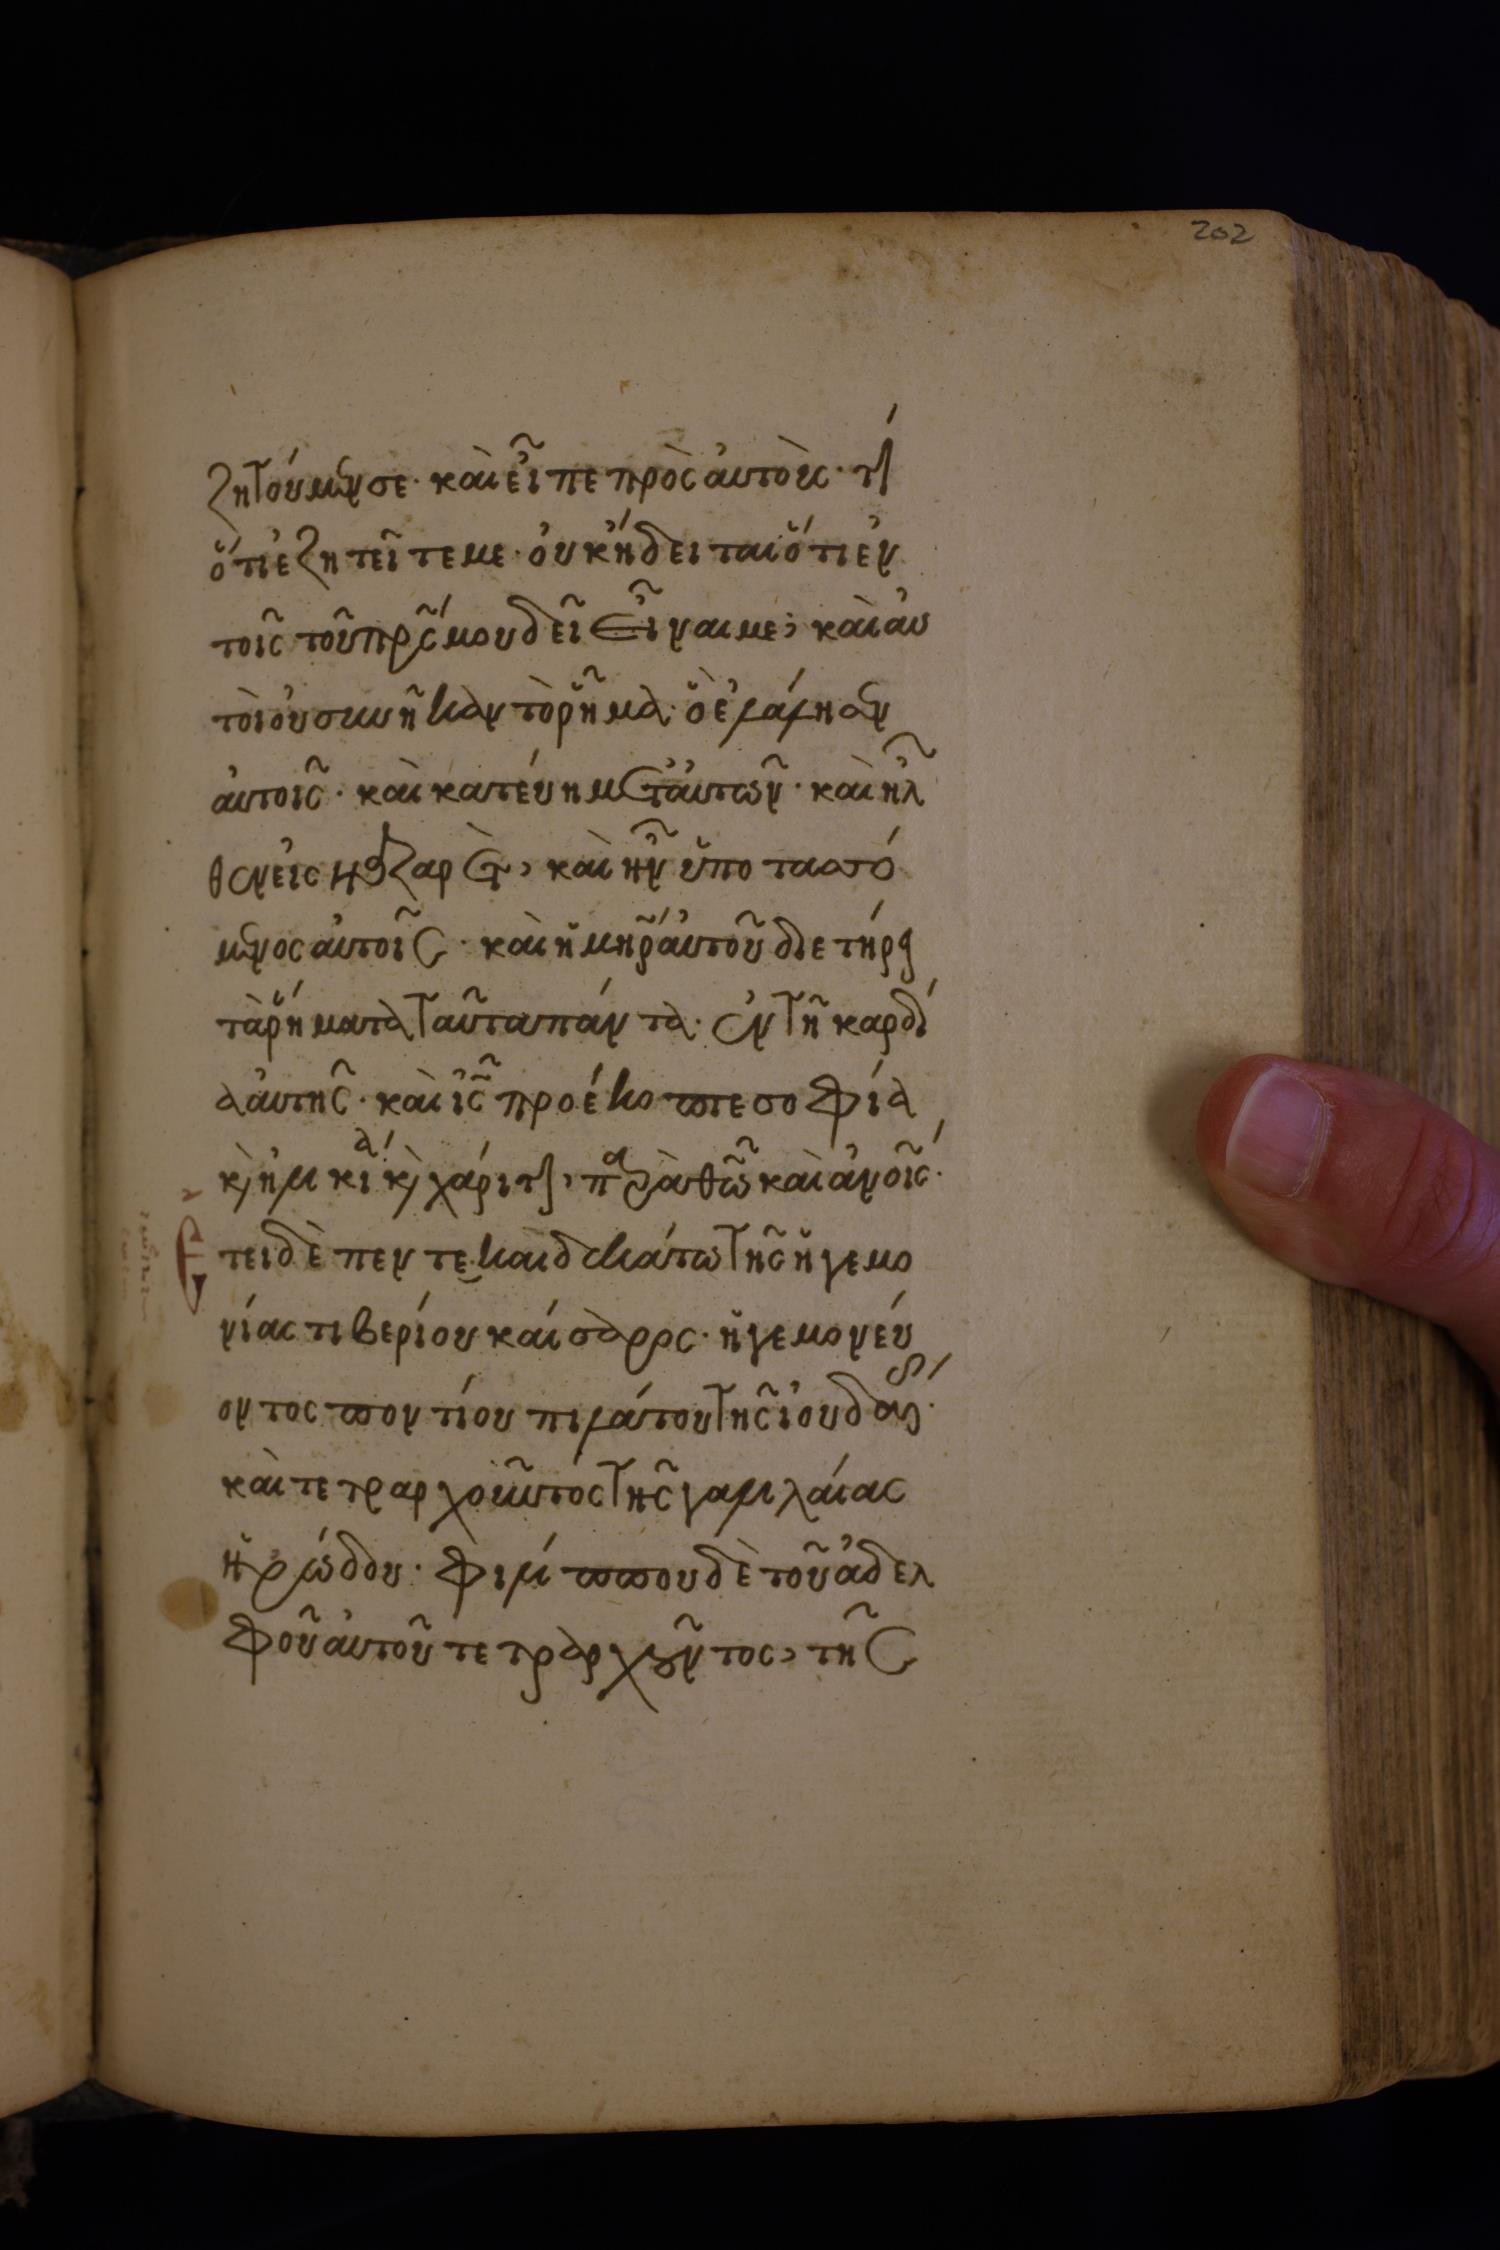 202
ζητοῦμέν σε· καὶ εἶπε πρὸς αὐτούς· τί
ὅτι ἐζητεῖτέ με· οὐκ ἤδειται ὅτι ἐν
τοῖς τοῦ πρ̅ς μου δεῖ εἶναι με; καὶ αὐ
τοὶ οὐ συνῆκαν τὸ ῥῆμα· ὃ ἐλάλησεν
αὐτοῖς· καὶ κατέβη μετ' αὐτῶν· καὶ ἦλ
θεν εἰς Ναζαρέτ, καὶ ἦν ὑποτασσό
μενος αὐτοῖς· καὶ ἡ μη̅ρ αὐτοῦ διετήρει
τὰ ῥήματα ταῦτα πάντα· ἐν τῇ καρδί
α αὐτῆς· καὶ ι̅ς προέκοπτε σοφία
κ(αὶ) ἡλικία κ(αὶ) χάριτι, παρὰ θ̅ω καὶ ἀν̅οις·
τει δὲ πεντεκαιδεκάτω τῆς ἡγεμο
νίας τιβερίου καίσαρος· ἡγεμονεύ
οντος ποντίου πιλάτου τῆς ἰουδαίας·
καὶ τετραρχοῦντος τῆς γαλιλαίας
ἡρώδου· φιλίππου δὲ τοῦ ἀδελ
φοῦ αὐτοῦ τετραρχοῦντος, τῆς